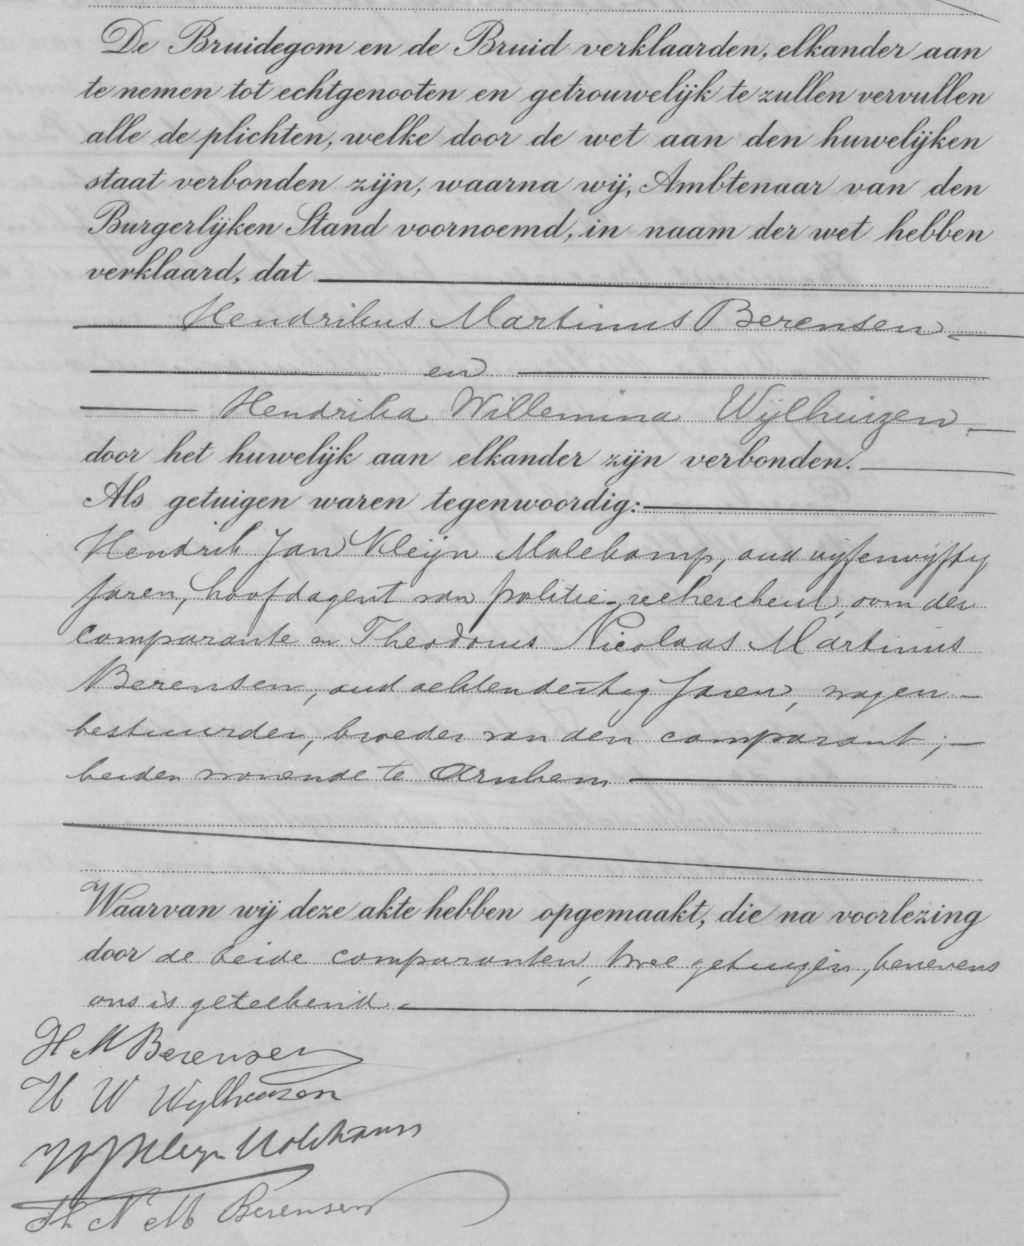 De Bruidegom en de Bruid verklaarden, elkander aan
te nemen tot echtgenooten en getrouwelijk te zullen vervullen
alle de plichten, welke door de wet aan den huwelijken
staat verbonden zijn, waarna wij, Ambtenaar van den
Burgerlijken Stand voornoemd, in naam der wet hebben
verklaard, dat
Hendrikus Martinus Berensen
en
Hendrika Willemina Wijlhuizen
door het huwelijk aan elkander zijn verbonden.
Als getuigen waren tegenwoordig:
Hendrik Jan Kleijn Molekamp, oud vijfenvijftig
jaren, hoofdagent van politie-rechercheur, oom der
comparante en Theodorus Nicolaas Martinus
Berensen, oud achtendertig jaren, wagen-
bestuurder, broeder van den comparant;
beiden wonende te Arnhem
Waarvan wij deze akte hebben opgemaakt, die na voorlezing
door de beide comparanten, twee getuigen, benevens
ons is geteekend.
H M Berensen
H W Wijlhuizen
HJ Kleijn Molekamp
Th N M Berensen